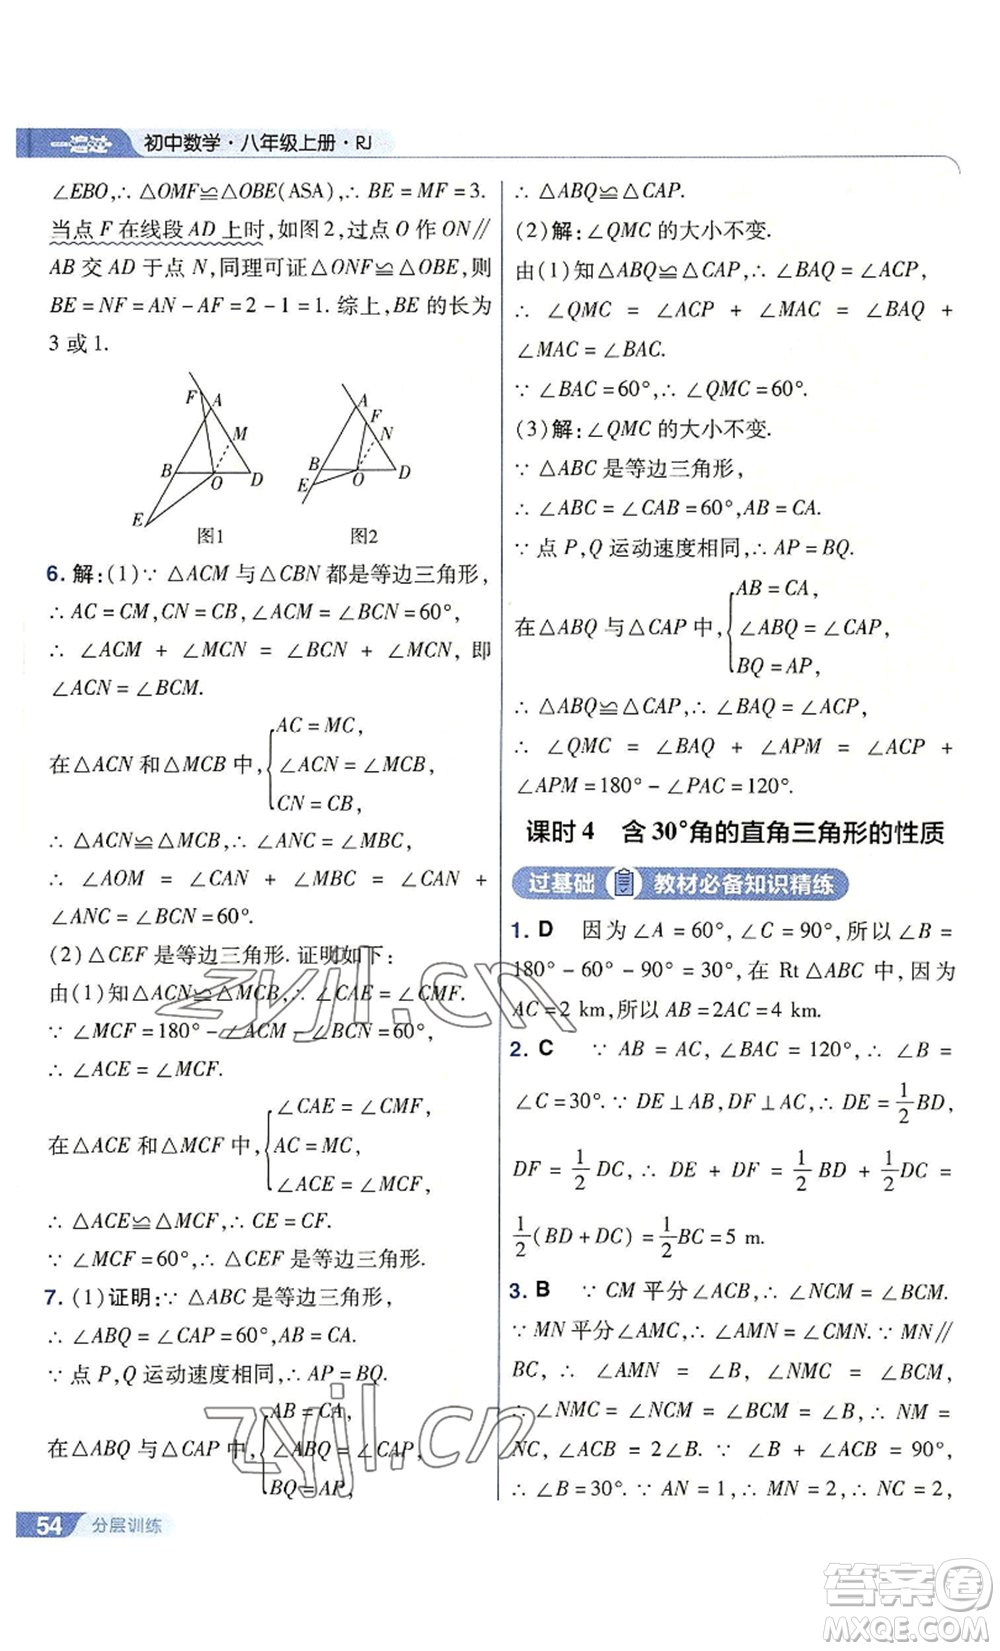 一遍过 初中数学·八年级上册·RJ
∠EBO,∴△OMF≌△OBE(ASA),∴BE=MF=3.
当点F在线段AD上时,如图2,过点O作ON∥
AB交AD于点N,同理可证△ONF≌△OBE,则
BE=NF=AN-AF=2-1=1.综上,BE的长为
3或1.
F A M B O D E
图1
A F N B O D E
图2
6. 解:(1)∵△ACM与△CBN都是等边三角形,
∴AC=CM,CN=CB,∠ACM=∠BCN=60°,
∴∠ACM+∠MCN=∠BCN+∠MCN,即
∠ACN=∠BCM.
AC=MC,
在△ACN和△MCB中,∠ACN=∠MCB,
CN=CB,
∴△ACN≌△MCB,∴∠ANC=∠MBC,
∴∠AOM=∠CAN+∠MBC=∠CAN+
∠ANC=∠BCN=60°.
(2)△CEF是等边三角形.证明如下:
由(1)知△ACN≌△MCB,∴∠CAE=∠CMF.
∵∠MCF=180°-∠ACM-∠BCN=60°,
∴∠ACE=∠MCF.
∠CAE=∠CMF,
在△ACE和△MCF中,AC=MC,
∠ACE=∠MCF,
∴△ACE≌△MCF,∴CE=CF.
∵∠MCF=60°,∴△CEF是等边三角形.
7. (1)证明:∵△ABC是等边三角形,
∴∠ABQ=∠CAP=60°,AB=CA.
∵点P,Q运动速度相同,∴AP=BQ.
AB=CA,
在△ABQ与△CAP中,∠ABQ=∠CAP,
BQ=AP,
∴△ABQ≌△CAP.
(2)解:∠QMC的大小不变.
由(1)知△ABQ≌△CAP,∴∠BAQ=∠ACP,
∴∠QMC=∠ACP+∠MAC=∠BAQ+
∠MAC=∠BAC.
∵∠BAC=60°,∴∠QMC=60°.
(3)解:∠QMC的大小不变.
∵△ABC是等边三角形,
∴∠ABC=∠CAB=60°,AB=CA.
∵点P,Q运动速度相同,∴AP=BQ.
AB=CA,
在△ABQ与△CAP中,∠ABQ=∠CAP,
BQ=AP,
∴△ABQ≌△CAP,∴∠BAQ=∠ACP,
∴∠QMC=∠BAQ+∠APM=∠ACP+
∠APM=180°-∠PAC=120°.
课时4 含30°角的直角三角形的性质
过基础 教材必备知识精练
1. D 因为∠A=60°,∠C=90°,所以∠B=
180°-60°-90°=30°,在Rt△ABC中,因为
AC=2 km,所以AB=2AC=4 km.
2. C ∵AB=AC,∠BAC=120°,∴∠B=
∠C=30°.∵DE⊥AB,DF⊥AC,∴DE=1/2BD,
DF=1/2DC,∴DE+DF=1/2BD+1/2DC=
1/2(BD+DC)=1/2BC=5 m.
3. B ∵CM平分∠ACB,∴∠NCM=∠BCM.
∵MN平分∠AMC,∴∠AMN=∠CMN.∵MN∥
BC,∴∠AMN=∠B,∠NMC=∠BCM,
∴∠NMC=∠NCM=∠B,∴NM=
NC,∠ACB=2∠B.∵∠B+∠ACB=90°,
∴∠B=30°.∵∠AMN=∠B,MN=NC=2,
54 分层训练
zyjl.cn
zyjl.cn
答案圈
MXQE.COM